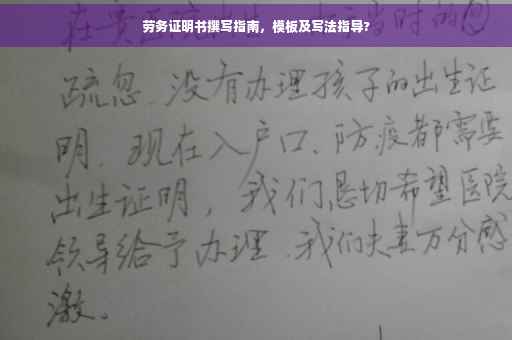 劳务证明书撰写指南，模板及写法指导?
当时的
疏忽、没有办理孩子的出生证
明、现在入户口、防疫都需要
出生证明，我们恳切希望医院
领导给予办理、我们夫妻万分感
激。